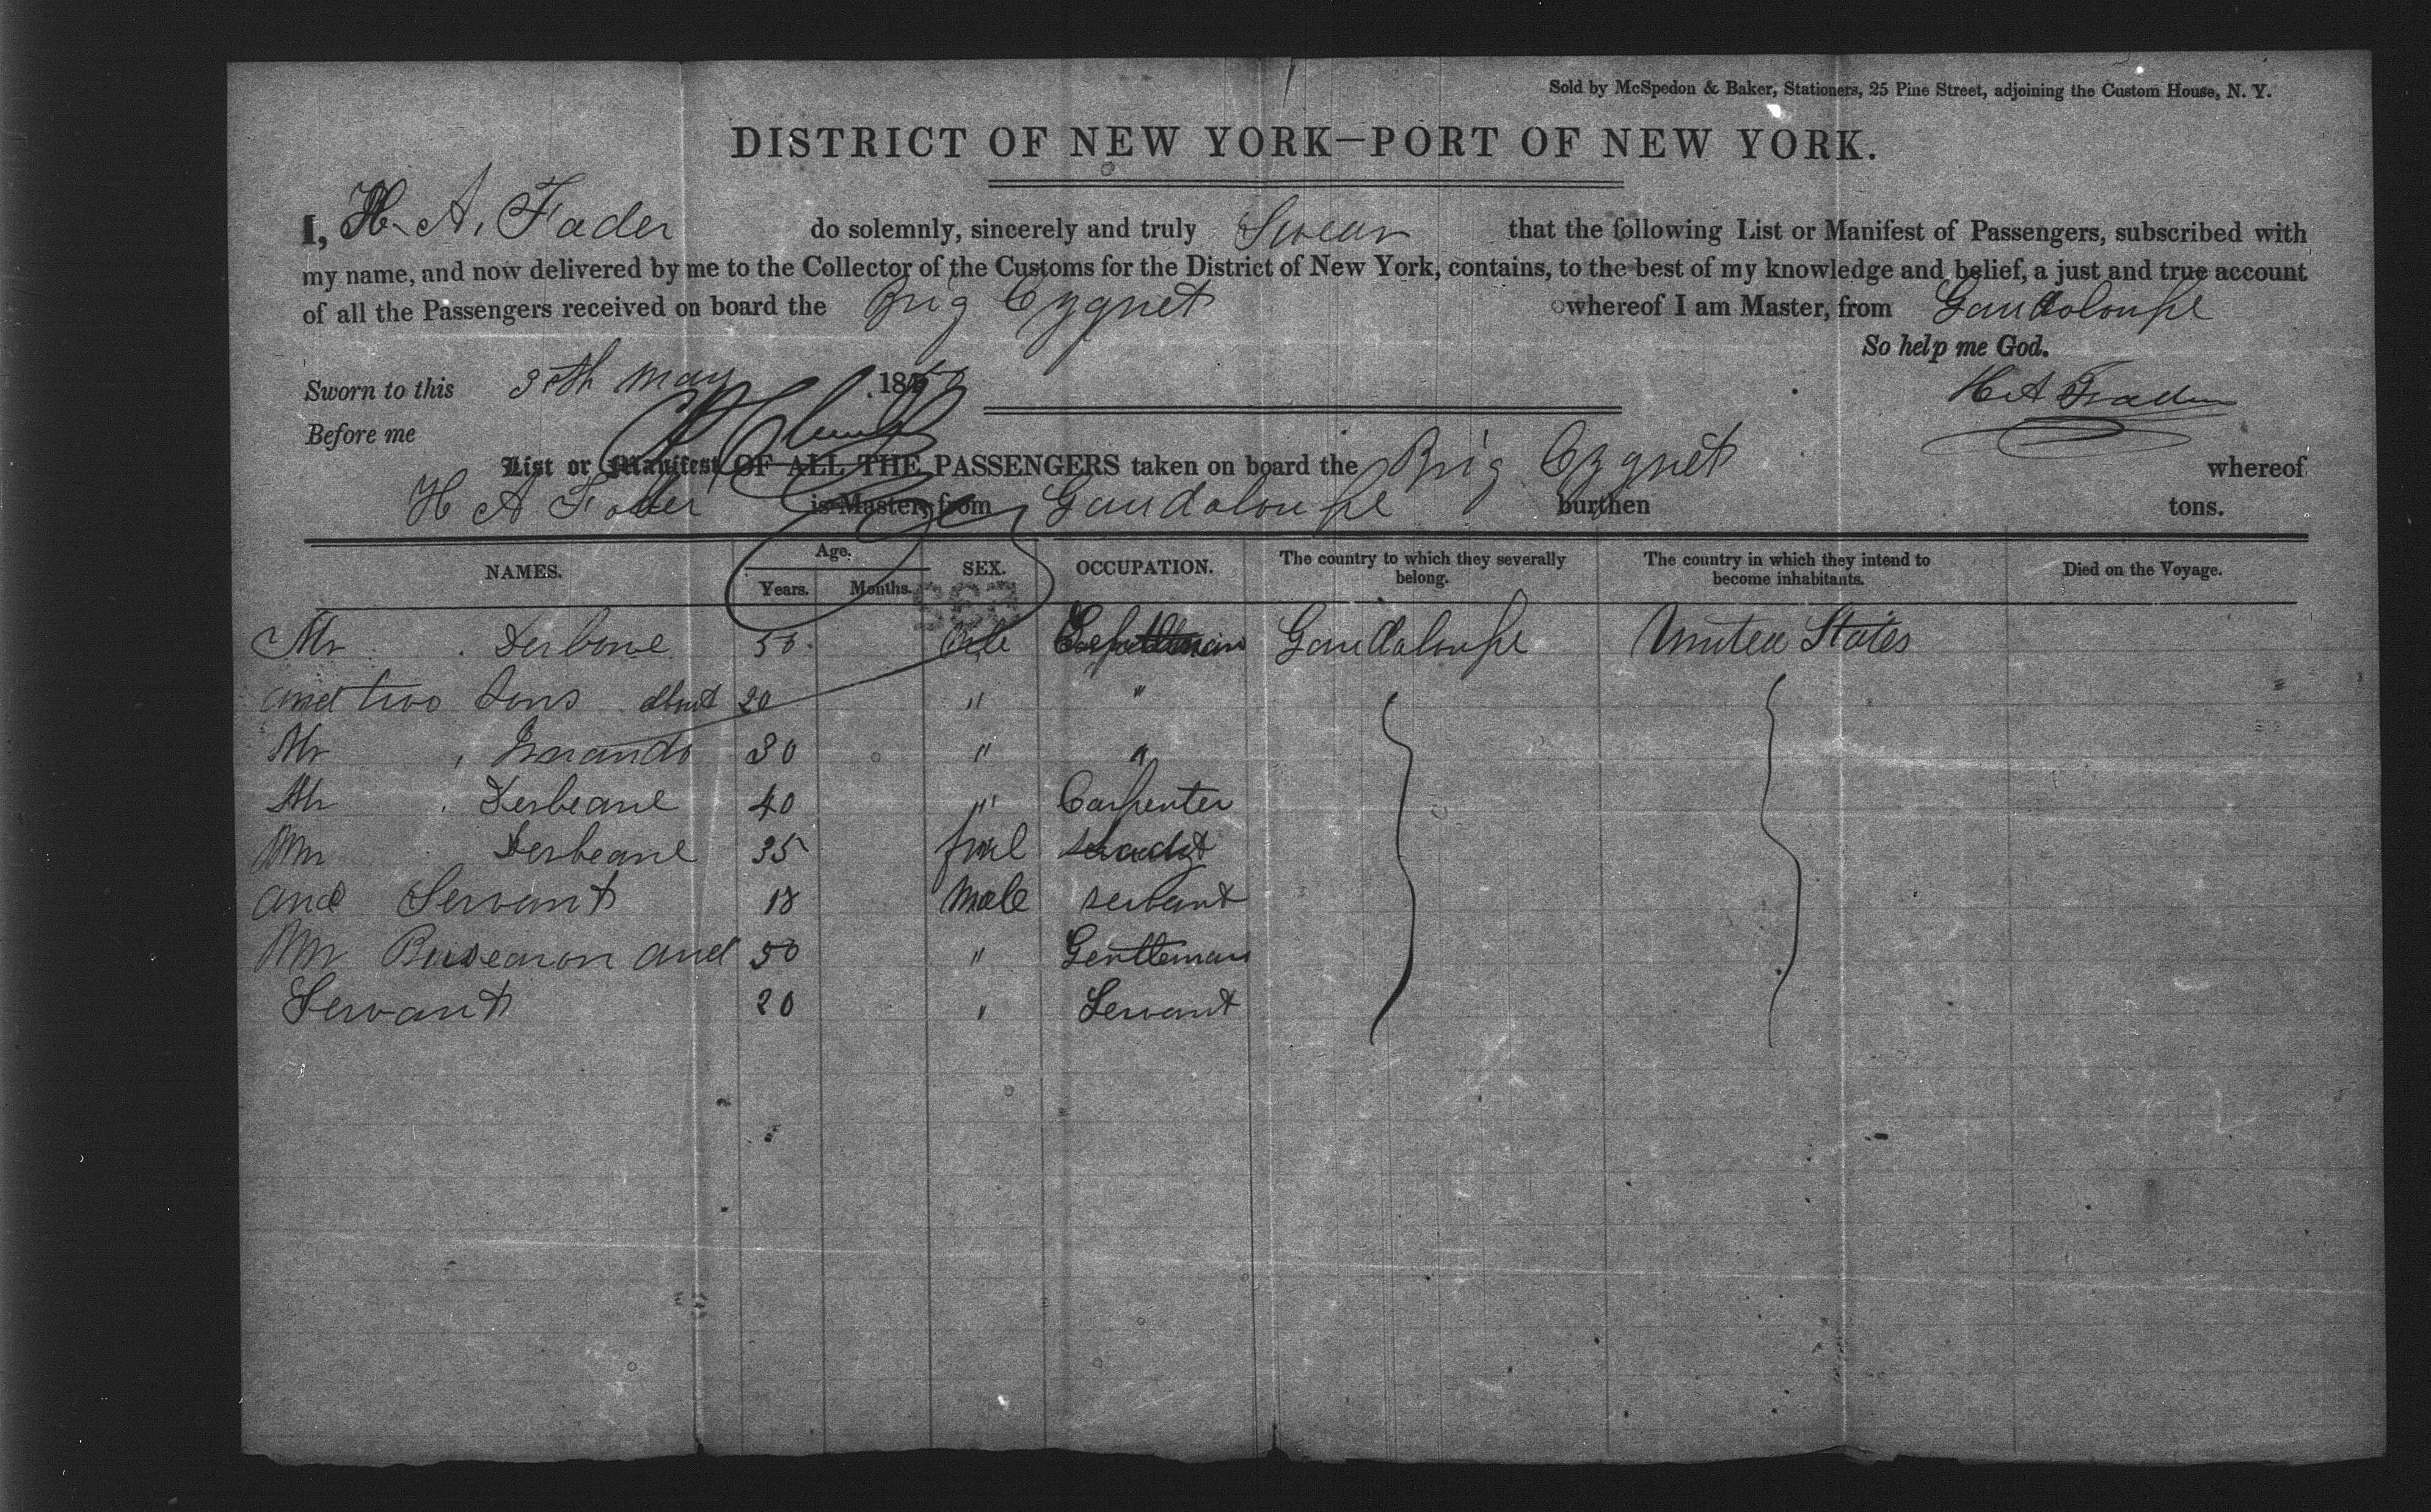 Sold by McSpedon & Baker, Stationers, 25 Pine Street, adjoining the Custom House, N. Y.
DISTRICT OF NEW YORK—PORT OF NEW YORK.
I, H. A. Fader do solemnly, sincerely and truly Swear that the following List or Manifest of Passengers, subscribed with
my name, and now delivered by me to the Collector of the Customs for the District of New York, contains, to the best of my knowledge and belief, a just and true account
of all the Passengers received on board the Brig Cygnet whereof I am Master, from Gaudaloupe
So help me God.
Sworn to this 30th May 185
H A Fader
Before me
List or Manifest OF ALL THE PASSENGERS taken on board the Brig Cygnet whereof
H A Fader is Master, from Gaudaloupe burthen tons.
NAMES. Age. Years. Months. SEX. OCCUPATION. The country to which they severally belong. The country in which they intend to become inhabitants. Died on the Voyage.
Mr Derbone 50 Gentleman Gaudaloupe United States
and two Sons about 20 " "
Mr 30 " "
Mr Desbeane 40 " Carpenter
Mrs Desbeane 35 fmal
and Servant 18 Male servant
Mr and 50 " Gentleman
Servant 20 " Servant